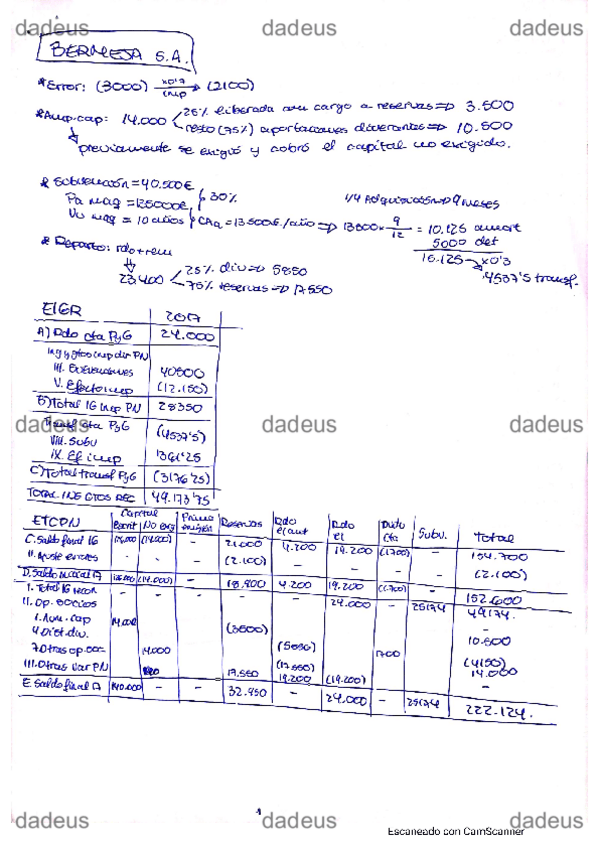 dadeus dadeus dadeus
BERMESA S.A.
* Error: (3000) x0'7 imp → (2100)
* Amp. cap: 14.000 25% liberada con cargo a reservas => 3.500
resto (75%) aportaciones dinerarias => 10.500
previamente se exigió y cobró el capital no exigido.
* Subvención = 40.500€
Pa maq = 135000€ 30%
Vu maq = 10 años CAa = 13500€/año => 13500 x 9/12 = 10.125 amort
1/4 Adquisición => 9 meses
5000 det
15.125 x0'3
4537'5 transf.
* Reparto: rdo + rem
23.400 25% div => 5850
75% reservas => 17.550
EIGR 2017
A) Rdo cta PyG 24.000
Ing y gtos imp dir PN
III. Subvenciones 40500
V. Efecto imp (12.150)
B) Total IG imp PN 28350
dadeus dadeus dadeus
Transf cta PyG
VIII. Subv (4537'5)
IX. Ef imp 1361'25
C) Total transf PyG (3176'25)
TOTAL ING GTOS REC 49.173'75
ETCPN Capital Escrit No exig Prima emisión Reservas Rdo ej ant Rdo ej Subv. Total
C. Saldo final 16 (14.000) - 21.000 4.200 19.200 (1700) - 154.700
II. Ajuste errores - - - (2.100) - - - - (2.100)
D. Saldo inicial 17 (14.000) - 18.900 4.200 19.200 (1.700) - 152.600
I. Total IG recon - - - - - 24.000 - 25174 49174
II. Op. socios
1. Aum. cap 14.000 (3500) 10.500
4. Dist. div. (5850) 1700 (4150)
7. Otras op. soc 14.000 14.000
III. Otras var PN 17.550 (17.550) 19.200 (19.200) -
E. Saldo final 17 140.000 - - 32.950 - 24.000 - 25174 222.124.
1
dadeus dadeus dadeus
Escaneado con CamScanner